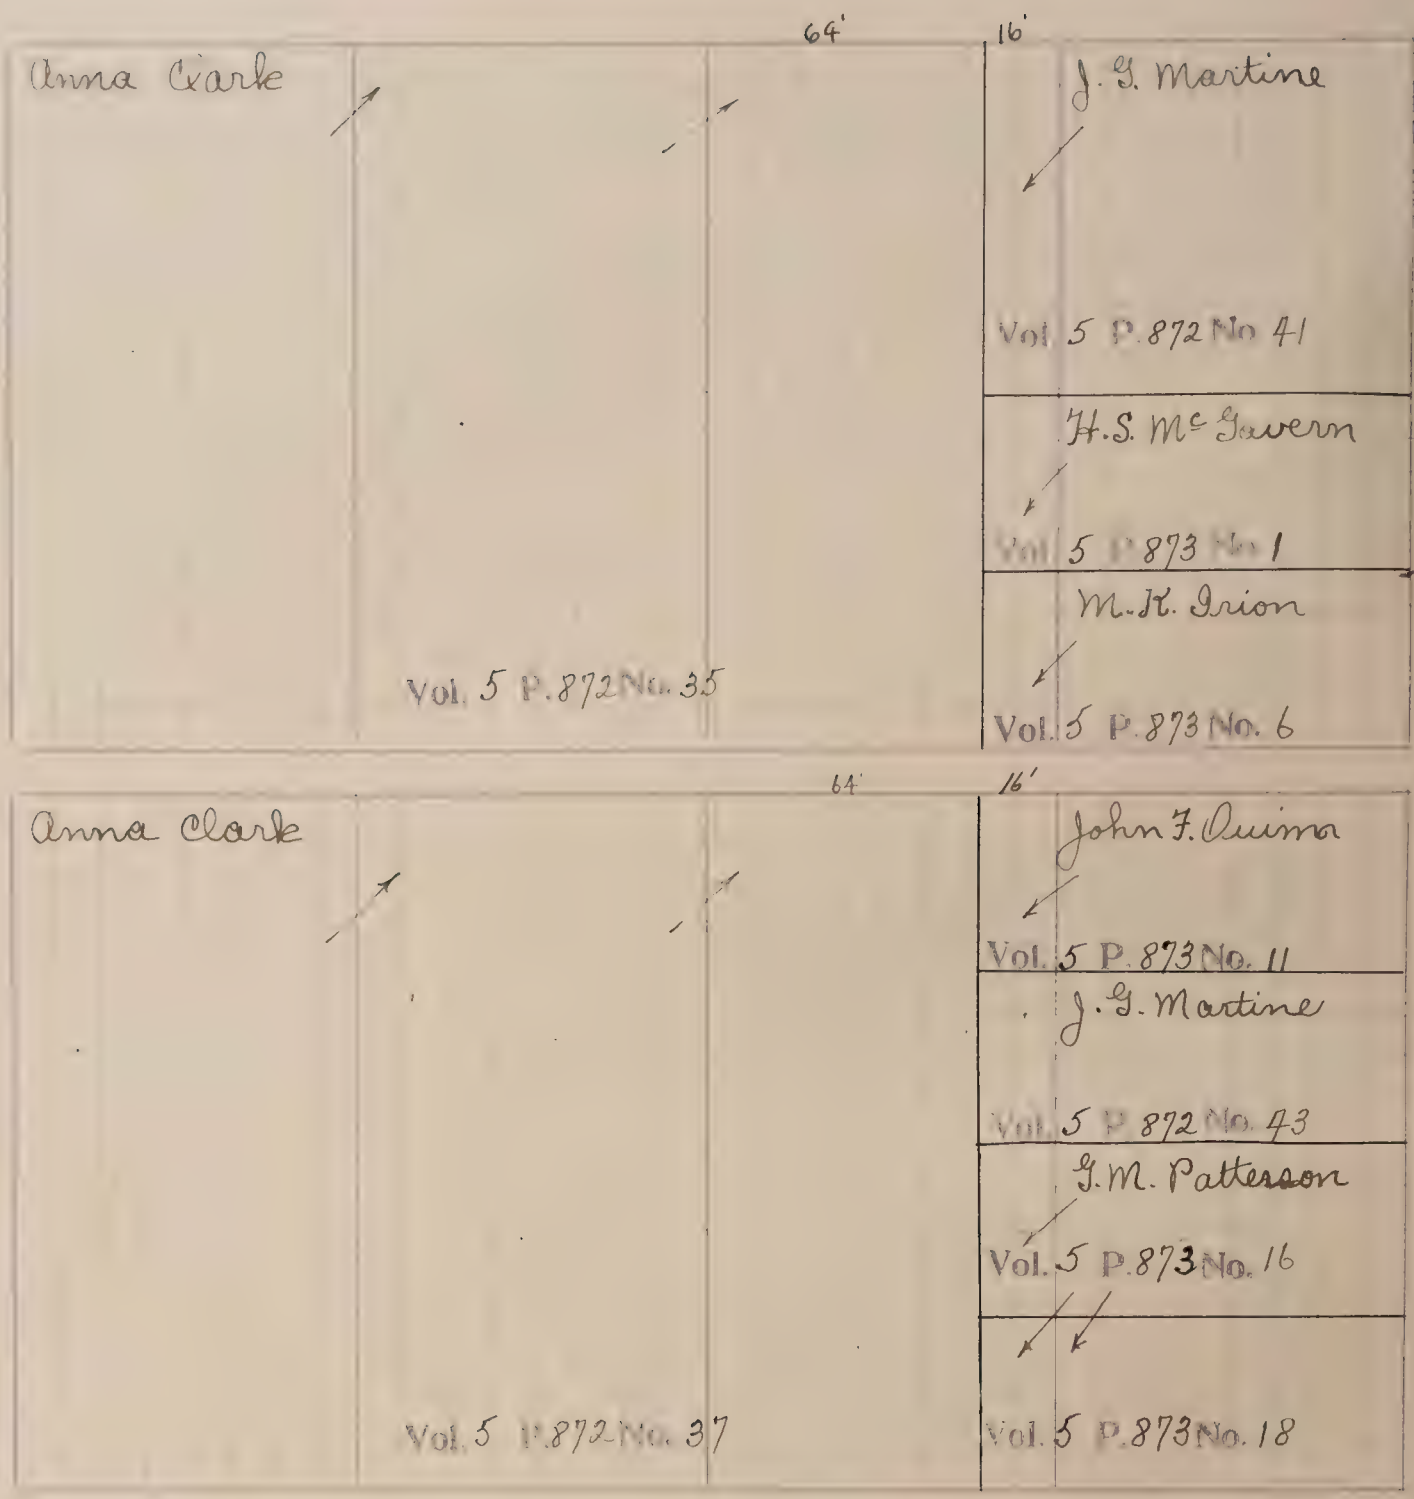 64' 16'
Anna Clark
J. G. Martine
Vol. 5 P. 872 No. 41
H. S. Mc Gavern
Vol. 5 P. 873 No. 1
M. K. Irion
Vol. 5 P. 872 No. 35
Vol. 5 P. 873 No. 6
64' 16'
Anna Clark
John F.
Vol. 5 P. 873 No. 11
J. G. Martine
Vol. 5 P. 872 No. 43
G. M. Patterson
Vol. 5 P. 873 No. 16
Vol. 5 P. 872 No. 37
Vol. 5 P. 873 No. 18